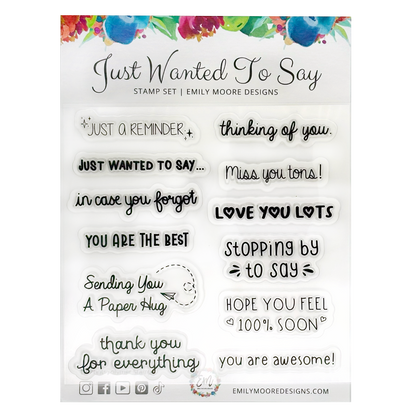 Just Wanted To Say
STAMP SET | EMILY MOORE DESIGNS
JUST A REMINDER
JUST WANTED TO SAY...
in case you forgot
YOU ARE THE BEST
Sending You
A Paper Hug
thank you
for everything
thinking of you.
Miss you tons!
LOVE YOU LOTS
Stopping by
to say
HOPE YOU FEEL
100% SOON
you are awesome!
EMILYMOOREDESIGNS.COM